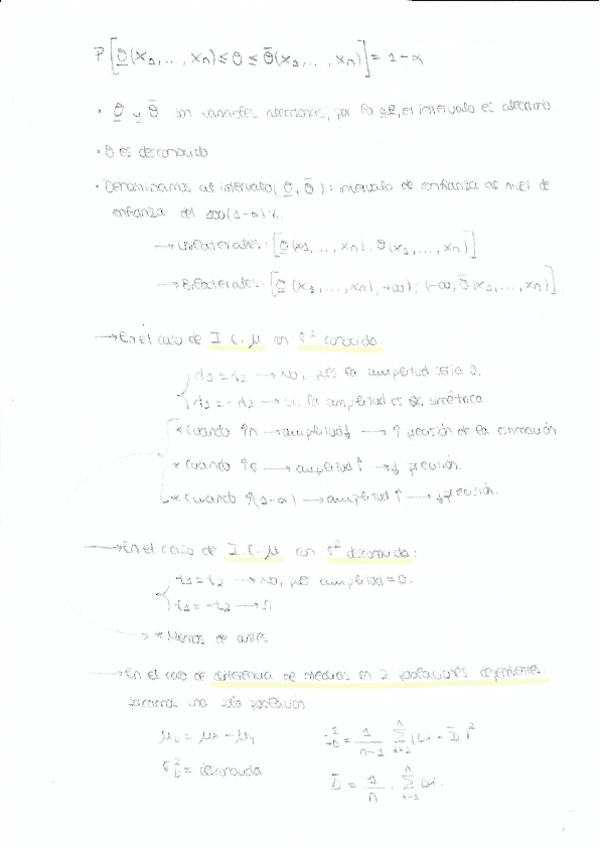 P[θ̲(x₁,..., xₙ) ≤ θ ≤ θ̄(x₁,..., xₙ)] = 1-α
• θ̲ y θ̄ son variables aleatorias, por lo q, el intervalo es aleatorio
• θ es desconocido
• Denominamos al intervalo (θ̲, θ̄): intervalo de confianza al nivel de
confianza del 100(1-α)%.
→ Unilaterales: [θ̲(x₁,..., xₙ), θ̄(x₁,..., xₙ)]
→ Bilaterales: [θ̲(x₁,..., xₙ), +∞); (-∞, θ̄(x₁,..., xₙ)].
→ En el caso de I.C. μ con σ² conocida:
z₁ = z₂ → No, pues la amplitud sería 0.
z₁ = -z₂ → Si, la amplitud es simétrica
* Cuando ↑n → amplitud↓ → ↑ precisión de la estimación
* Cuando ↑σ → amplitud↑ → ↓ precisión.
* Cuando ↑(1-α) → amplitud↑ → ↓ precisión.
→ En el caso de I.C. μ con σ² desconocida:
t₁ = t₂ → No, pues amplitud = 0.
t₁ = -t₂ → Si
* Mismos de antes
→ En el caso de diferencia de medias en 2 poblaciones dependientes:
una sola población
μ_D = μₓ - μ_y
σ²_D = desconocida
S²_D = 1/(n-1) Σⁿᵢ₌₁ (Di - D̄)²
D̄ = 1/n · Σⁿᵢ₌₁ Di.